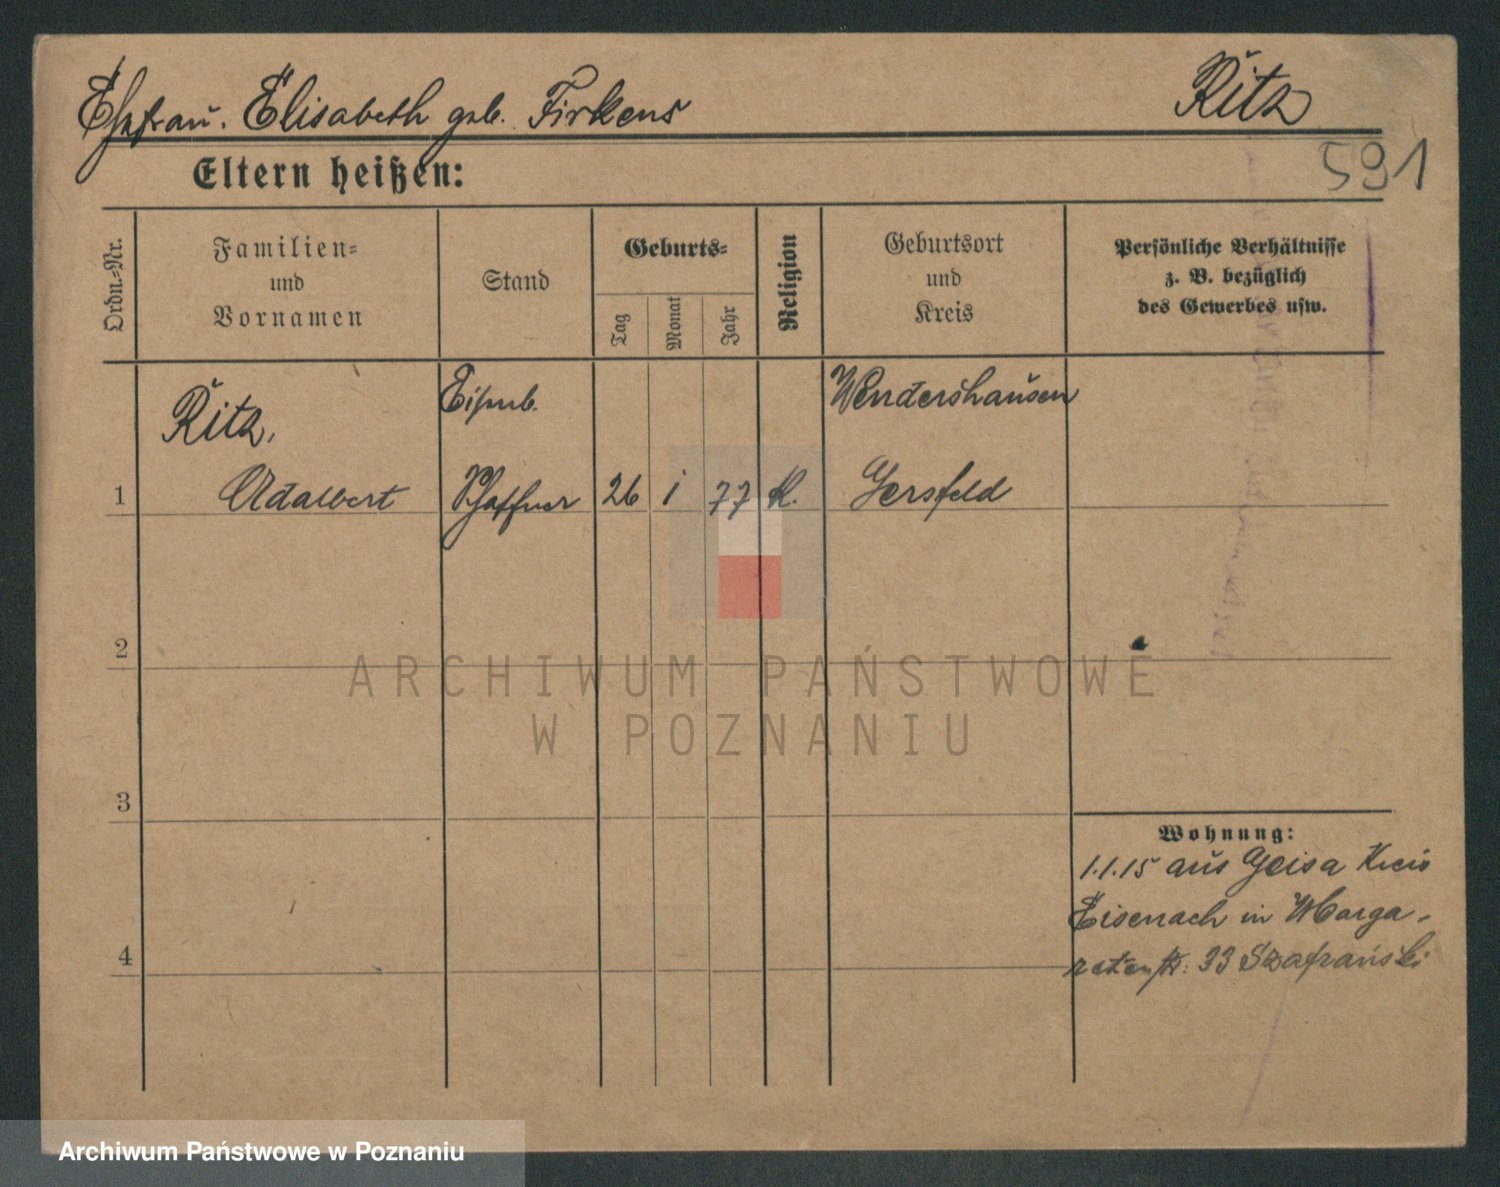 Ritz
Ehefrau. Elisabeth geb. Firkens
591
Eltern heißen:
Ordn.=Nr.
Familien=
und
Vornamen
Stand
Geburts=
Tag
Monat
Jahr
Religion
Geburtsort
und
Kreis
Persönliche Verhältnisse
z. B. bezüglich
des Gewerbes usw.
Ritz, Eisenb. Wendershausen
1 Adalbert Schaffner 26 1 77 K. Gersfeld
2
3
4
Wohnung:
1.1.15 aus Geisa Kreis
Eisenach in Marga-
retenstr. 33 Szafrański
ARCHIWUM PAŃSTWOWE
W POZNANIU
Archiwum Państwowe w Poznaniu